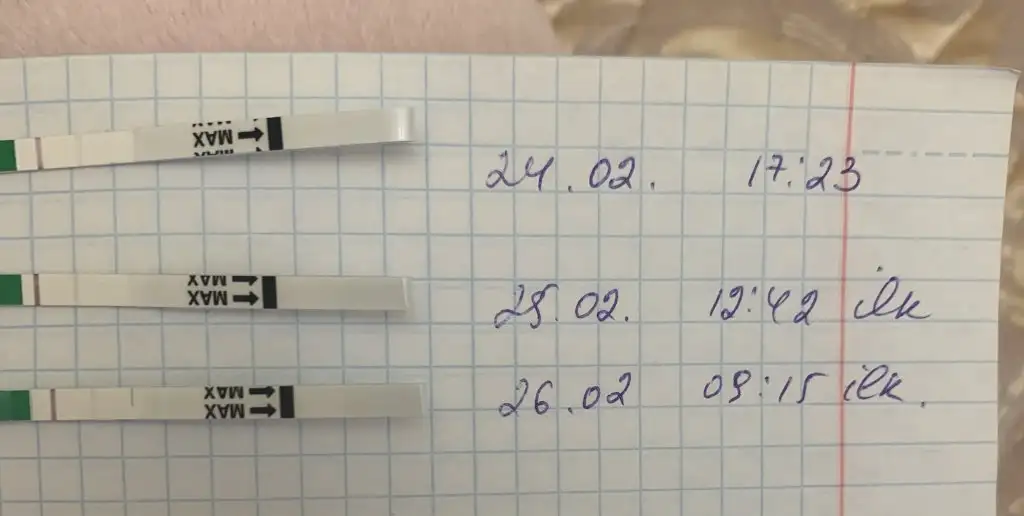 MAX
24.02. 17:23
MAX
MAX
25.02. 12:42
MAX
MAX
26.02 09:15